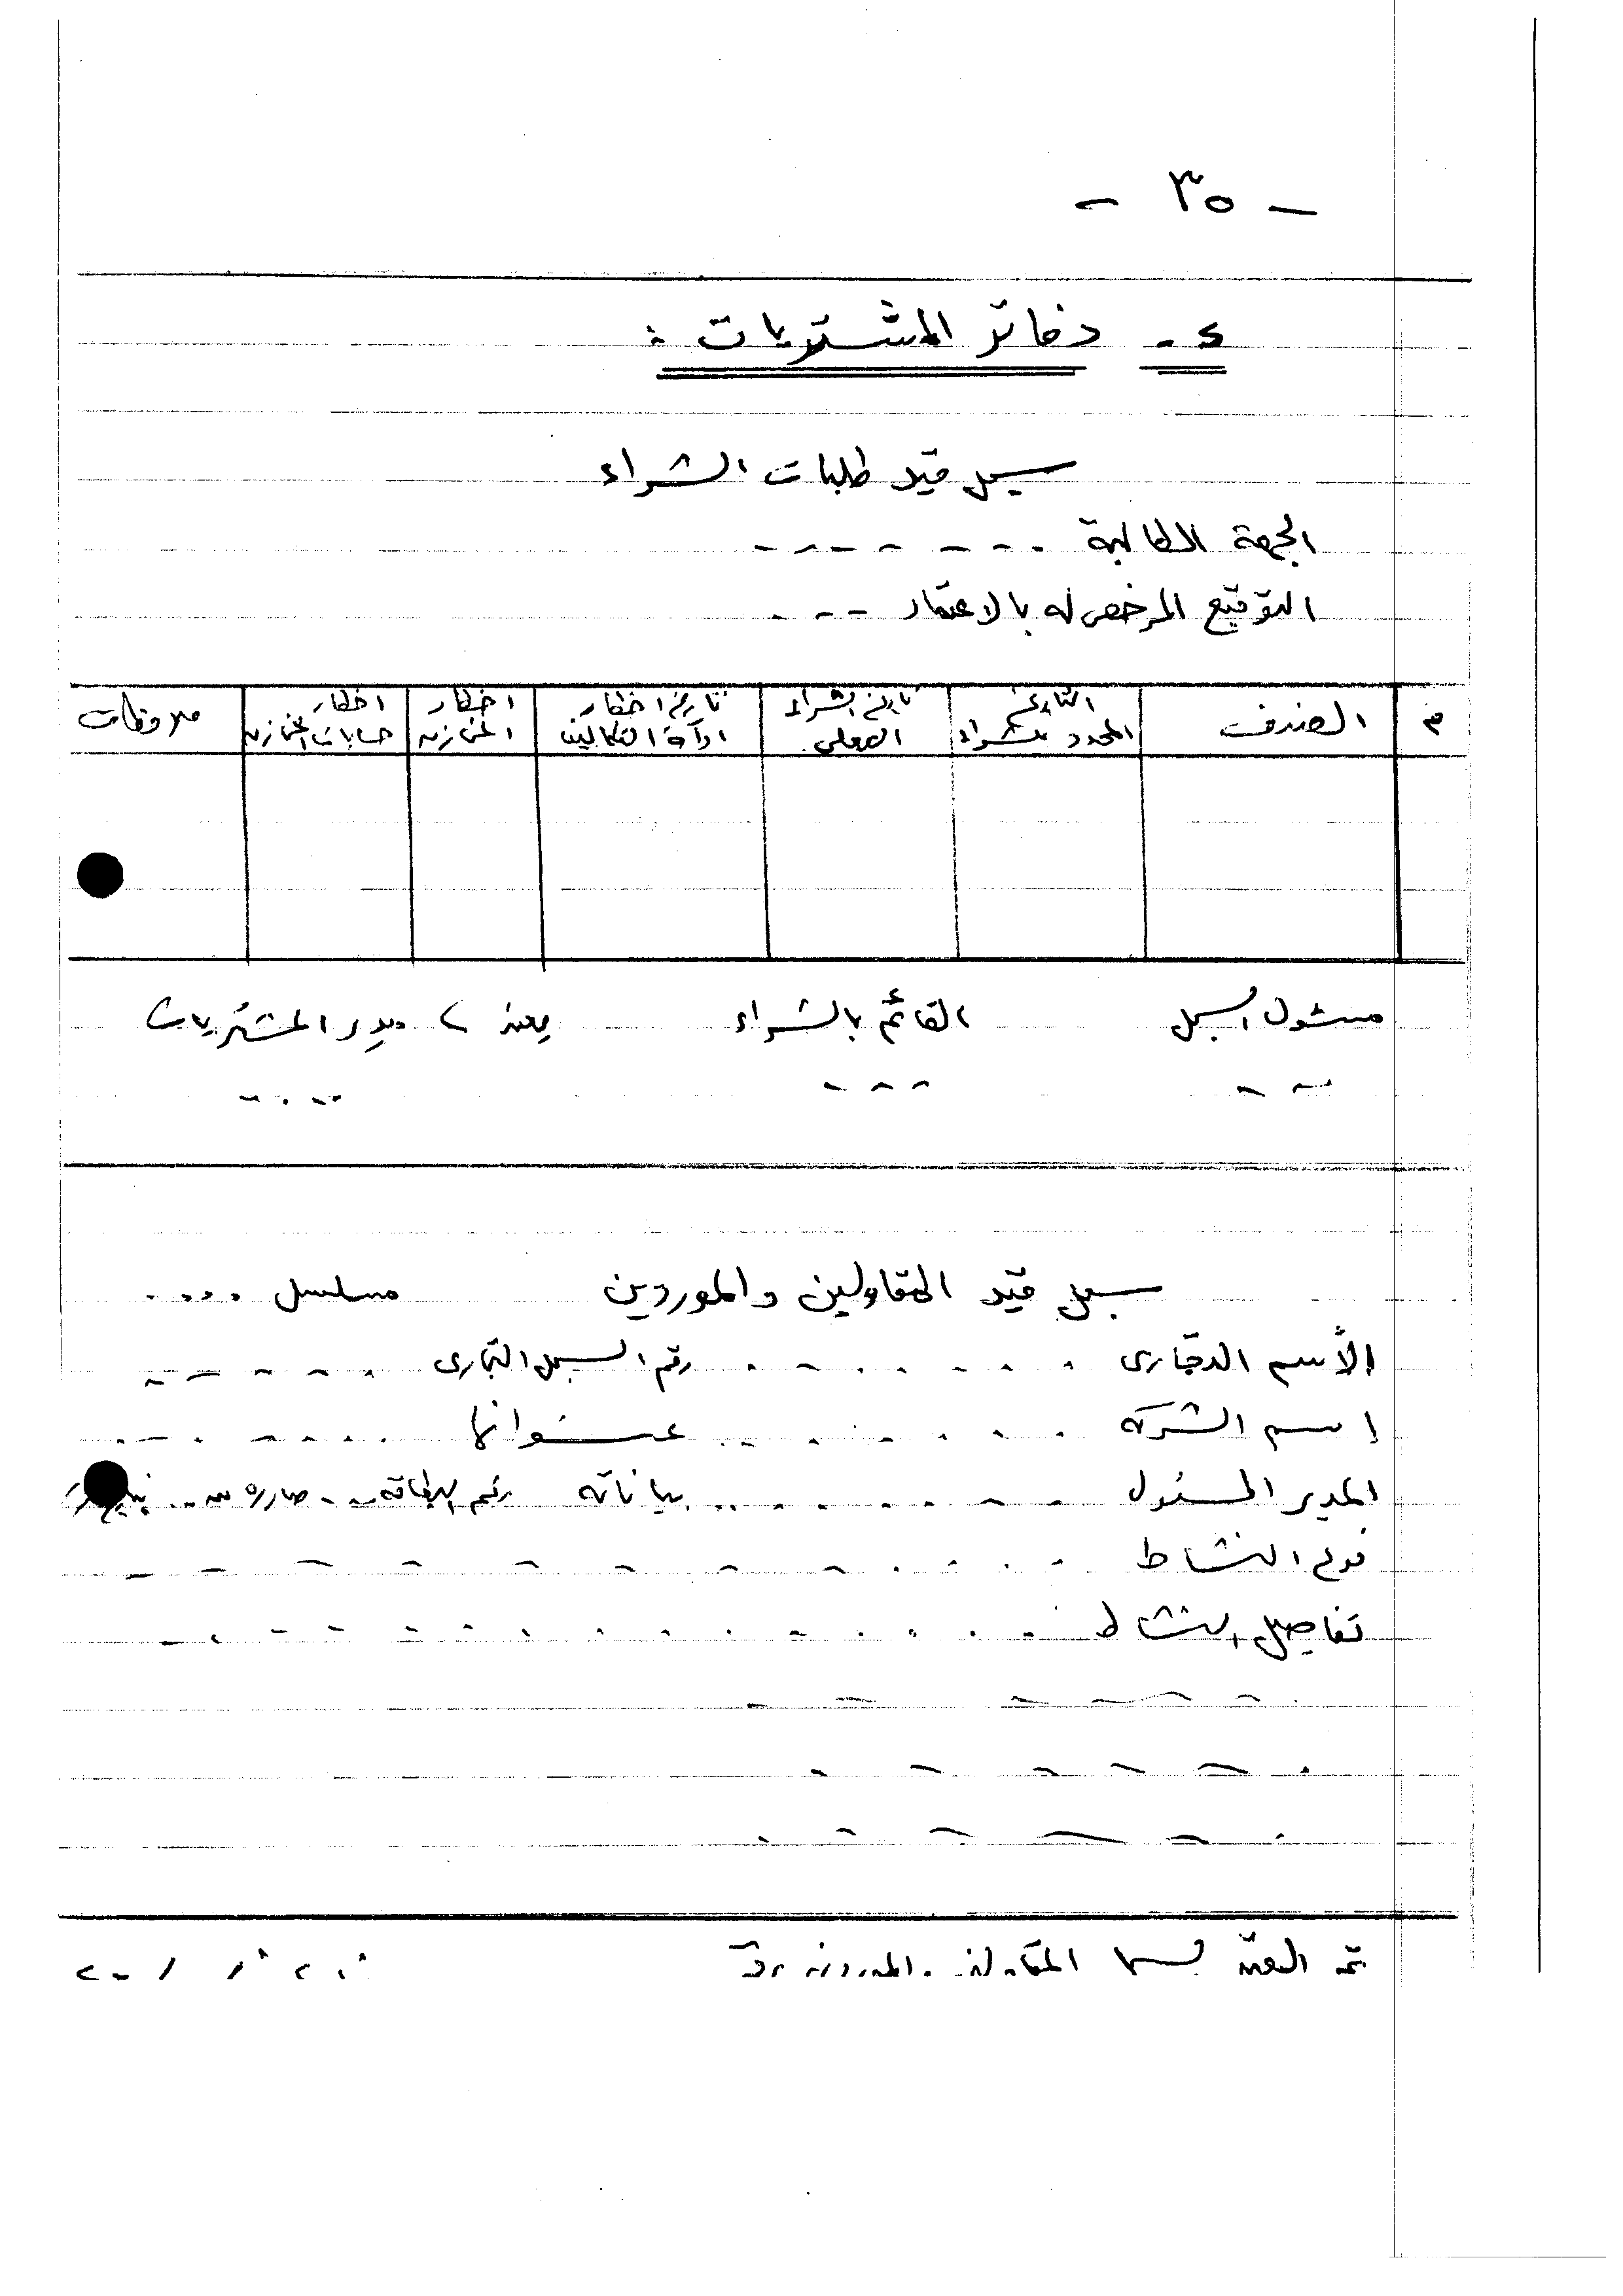 - ٣٥ -
٤- دفاتر المشتريات :
سجل قيد طلبات الشراء
الجهة الطالبة - - - - - - -
التوقيع المرخص له بالاعتماد - - - -
م | الصنف | التاريخ المحدد للشراء | تاريخ الشراء الفعلى | تاريخ اخطار ادارة التكاليف | اخطار المخازن | اخطار حسابات المخازن | ملاحظات
مسئول السجل القائم بالشراء يعتمد ، مدير المشتريات
- - - - - - - - -
سجل قيد المقاولين والموردين مسلسل ....
الأسم التجارى . . . . . . . رقم السجل التجارى . . . . . .
إسم الشركه . . . . . . . عنوانها . . . . . . .
المدير المسئول . . . . . . . بياناته رقم البطاقة - - صادره من ..
نوع النشاط . . . . . . . . . . .
تفاصيل النشاط . . . . . . . . . . .
تم القيد بسجل المقاولين والموردين